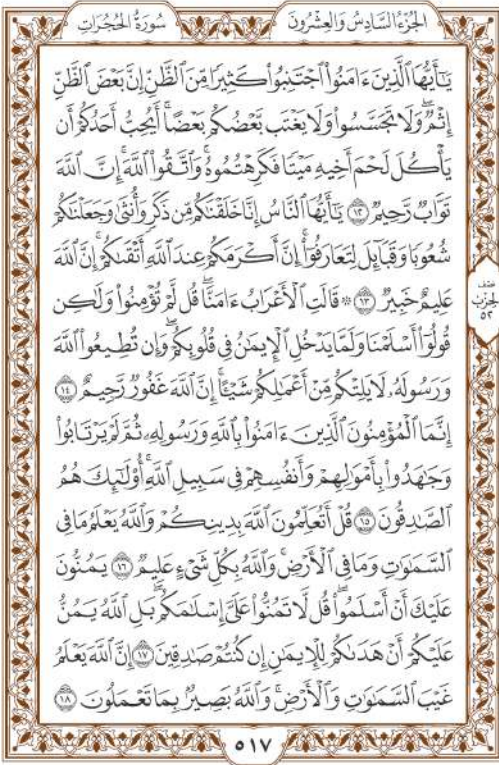 سُورَةُ الحُجُرَاتِ
الجُزْءُ السَّادِسُ وَالعِشْرُونَ
يَـٰٓأَيُّهَا ٱلَّذِينَ ءَامَنُواْ ٱجْتَنِبُواْ كَثِيرًا مِّنَ ٱلظَّنِّ إِنَّ بَعْضَ ٱلظَّنِّ
إِثْمٌۖ وَلَا تَجَسَّسُواْ وَلَا يَغْتَب بَّعْضُكُم بَعْضًاۚ أَيُحِبُّ أَحَدُكُمْ أَن
يَأْكُلَ لَحْمَ أَخِيهِ مَيْتًا فَكَرِهْتُمُوهُۚ وَٱتَّقُواْ ٱللَّهَۚ إِنَّ ٱللَّهَ
تَوَّابٌ رَّحِيمٌ ١٢ يَـٰٓأَيُّهَا ٱلنَّاسُ إِنَّا خَلَقْنَـٰكُم مِّن ذَكَرٍ وَأُنثَىٰ وَجَعَلْنَـٰكُمْ
شُعُوبًا وَقَبَآئِلَ لِتَعَارَفُوٓاْۚ إِنَّ أَكْرَمَكُمْ عِندَ ٱللَّهِ أَتْقَىٰكُمْۚ إِنَّ ٱللَّهَ
عَلِيمٌ خَبِيرٌ ١٣ ۞ قَالَتِ ٱلْأَعْرَابُ ءَامَنَّاۖ قُل لَّمْ تُؤْمِنُواْ وَلَـٰكِن
قُولُوٓاْ أَسْلَمْنَا وَلَمَّا يَدْخُلِ ٱلْإِيمَـٰنُ فِي قُلُوبِكُمْۖ وَإِن تُطِيعُواْ ٱللَّهَ
وَرَسُولَهُۥ لَا يَلِتْكُم مِّنْ أَعْمَـٰلِكُمْ شَيْـًٔاۚ إِنَّ ٱللَّهَ غَفُورٌ رَّحِيمٌ ١٤
إِنَّمَا ٱلْمُؤْمِنُونَ ٱلَّذِينَ ءَامَنُواْ بِٱللَّهِ وَرَسُولِهِۦ ثُمَّ لَمْ يَرْتَابُواْ
وَجَـٰهَدُواْ بِأَمْوَٰلِهِمْ وَأَنفُسِهِمْ فِي سَبِيلِ ٱللَّهِۚ أُوْلَـٰٓئِكَ هُمُ
ٱلصَّـٰدِقُونَ ١٥ قُلْ أَتُعَلِّمُونَ ٱللَّهَ بِدِينِكُمْ وَٱللَّهُ يَعْلَمُ مَا فِي
ٱلسَّمَـٰوَٰتِ وَمَا فِي ٱلْأَرْضِۚ وَٱللَّهُ بِكُلِّ شَيْءٍ عَلِيمٌ ١٦ يَمُنُّونَ
عَلَيْكَ أَنْ أَسْلَمُواْۖ قُل لَّا تَمُنُّواْ عَلَيَّ إِسْلَـٰمَكُمۖ بَلِ ٱللَّهُ يَمُنُّ
عَلَيْكُمْ أَنْ هَدَىٰكُمْ لِلْإِيمَـٰنِ إِن كُنتُمْ صَـٰدِقِينَ ١٧ إِنَّ ٱللَّهَ يَعْلَمُ
غَيْبَ ٱلسَّمَـٰوَٰتِ وَٱلْأَرْضِۚ وَٱللَّهُ بَصِيرٌۢ بِمَا تَعْمَلُونَ ١٨
نصف
الحزب
٥٢
٥١٧